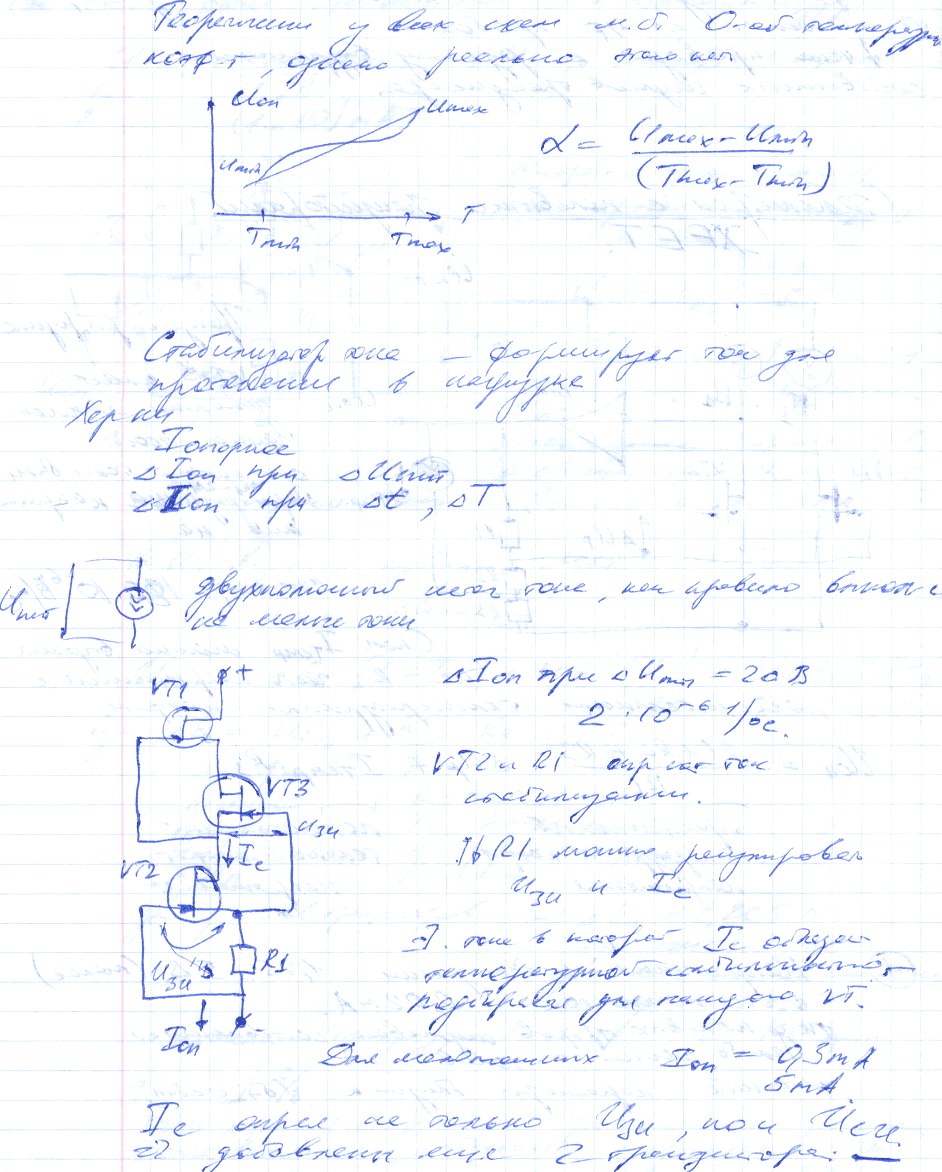 Теоретически у всех схем м.б. 0-ой температурн
коэф-т, однако реально этого нет
Uоп
Umax
Umin
Tmin
Tmax
T
α = Umax - Umin / (Tmax - Tmin)
Стабилизатор тока – формирует ток для
протекания в нагрузке
Хар ки
Iопорное
Δ Iоп при Δ Uпит
Δ Iоп при Δt, ΔT
Uпит
двухполюсный источ тока, как правило выполн
на малые токи
+
VT1
VT3
Uзи
Iс
VT2
Uзи
R1
Iоп
-
Δ Iоп при Δ Uпит = 20 В
2 · 10⁻⁶ 1/°С.
VT2 и R1 опр ют ток
стабилизации.
R1 можно регулировать
Uзи и Iс
Э. тока в которой Iс обладает
температурной стабильностью,
подбирая для каждого VT.
Для маломощных Iоп = 0,3 mA
5 mA
Iс опред не только Uзи, но и Uси.
=> добавлены еще 2 транзистора: